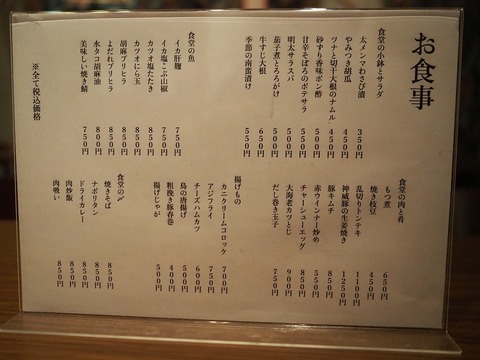 お食事
食堂の小鉢とサラダ
太メンマわさび漬 350円
やみつき胡瓜 450円
ツナと切干大根のナムル 450円
砂ずり香味ポン酢 500円
甘辛そぼろのポテサラ 500円
明太サラスパ 500円
茄子煮とろろがけ 500円
牛すじ大根 650円
季節の南蛮漬け 500円
食堂の肉と肴
もつ煮 650円
焼き枝豆 450円
乱切りトンテキ 1100円
神威豚の生姜焼き 1250円
豚キムチ 850円
赤ウインナー炒め 550円
チャーシューエッグ 850円
大海老カツとじ 900円
だし巻き玉子 750円
食堂の魚
イカ肝麹 750円
イカ塩こぶ山椒 750円
カツオ塩たたき 850円
カツオにら玉 850円
胡麻ブリヒラ 850円
よだれブリヒラ 850円
水タコ胡麻油 800円
美味しい焼き鯖 750円
揚げもの
カニクリームコロッケ 700円
アジフライ 750円
チーズハムカツ 600円
鳥の唐揚げ 500円
粗挽き豚春巻 400円
揚げじゃが 500円
食堂の〆
焼きそば 850円
ナポリタン 850円
ドライカレー 850円
肉炒飯 850円
肉吸い 850円
※全て税込価格